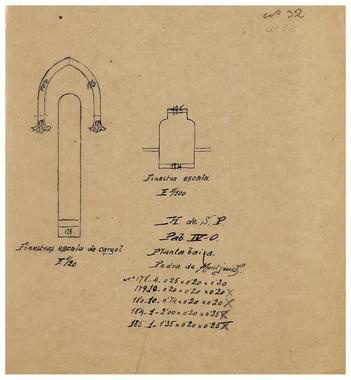 nº 32
nº 32
180
185
184
178
Finestra escala
E 1/100
Finestras escala de cargol
E 1/20
H. de S. P.
Pab. IV-O.
Planta baixa
Pedra de Montjuich
nº 178-4-0'25 x 0'20 x 0'30
179-10-0'20 x 0'20 x 0'20 x
180-10-0'74 x 0'20 x 0'20 x
184-1-2'00 x 0'20 x 0'35 x
185-1-1'35 x 0'20 x 0'25 x